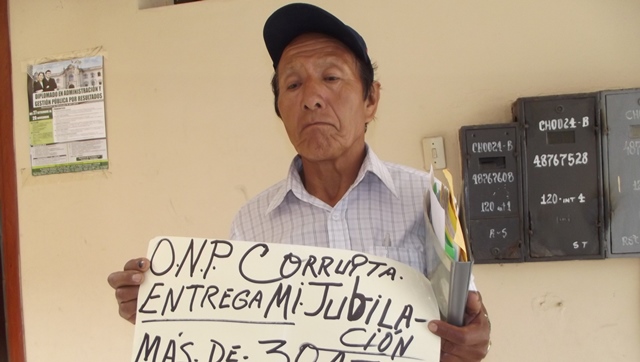 DIPLOMADO EN ADMINISTRACIÓN Y
GESTIÓN PÚBLICA POR RESULTADOS
O.N.P. CORRUPTA.
ENTREGA MI JUBILA-
CIÓN
MÁS. DE. 30
CH0024-B
48767608
120-INT 1
R-S
CH0024-B
48767528
120-INT 4
ST